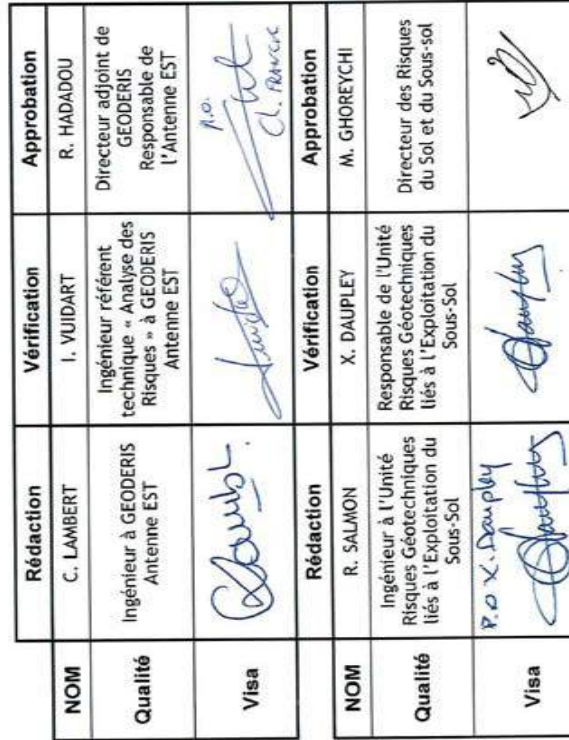 Rédaction Vérification Approbation
NOM C. LAMBERT I. VUIDART R. HADADOU
Qualité
Ingénieur à GEODERIS
Antenne EST
Ingénieur référent
technique « Analyse des
Risques » à GEODERIS
Antenne EST
Directeur adjoint de
GEODERIS
Responsable de
l'Antenne EST
Visa
P.O.
Cl. FRANCK
Rédaction Vérification Approbation
NOM R. SALMON X. DAUPLEY M. GHOREYCHI
Qualité
Ingénieur à l'Unité
Risques Géotechniques
liés à l'Exploitation du
Sous-Sol
Responsable de l'Unité
Risques Géotechniques
liés à l'Exploitation du
Sous-Sol
Directeur des Risques
du Sol et du Sous-sol
Visa
P.O X. Daupley